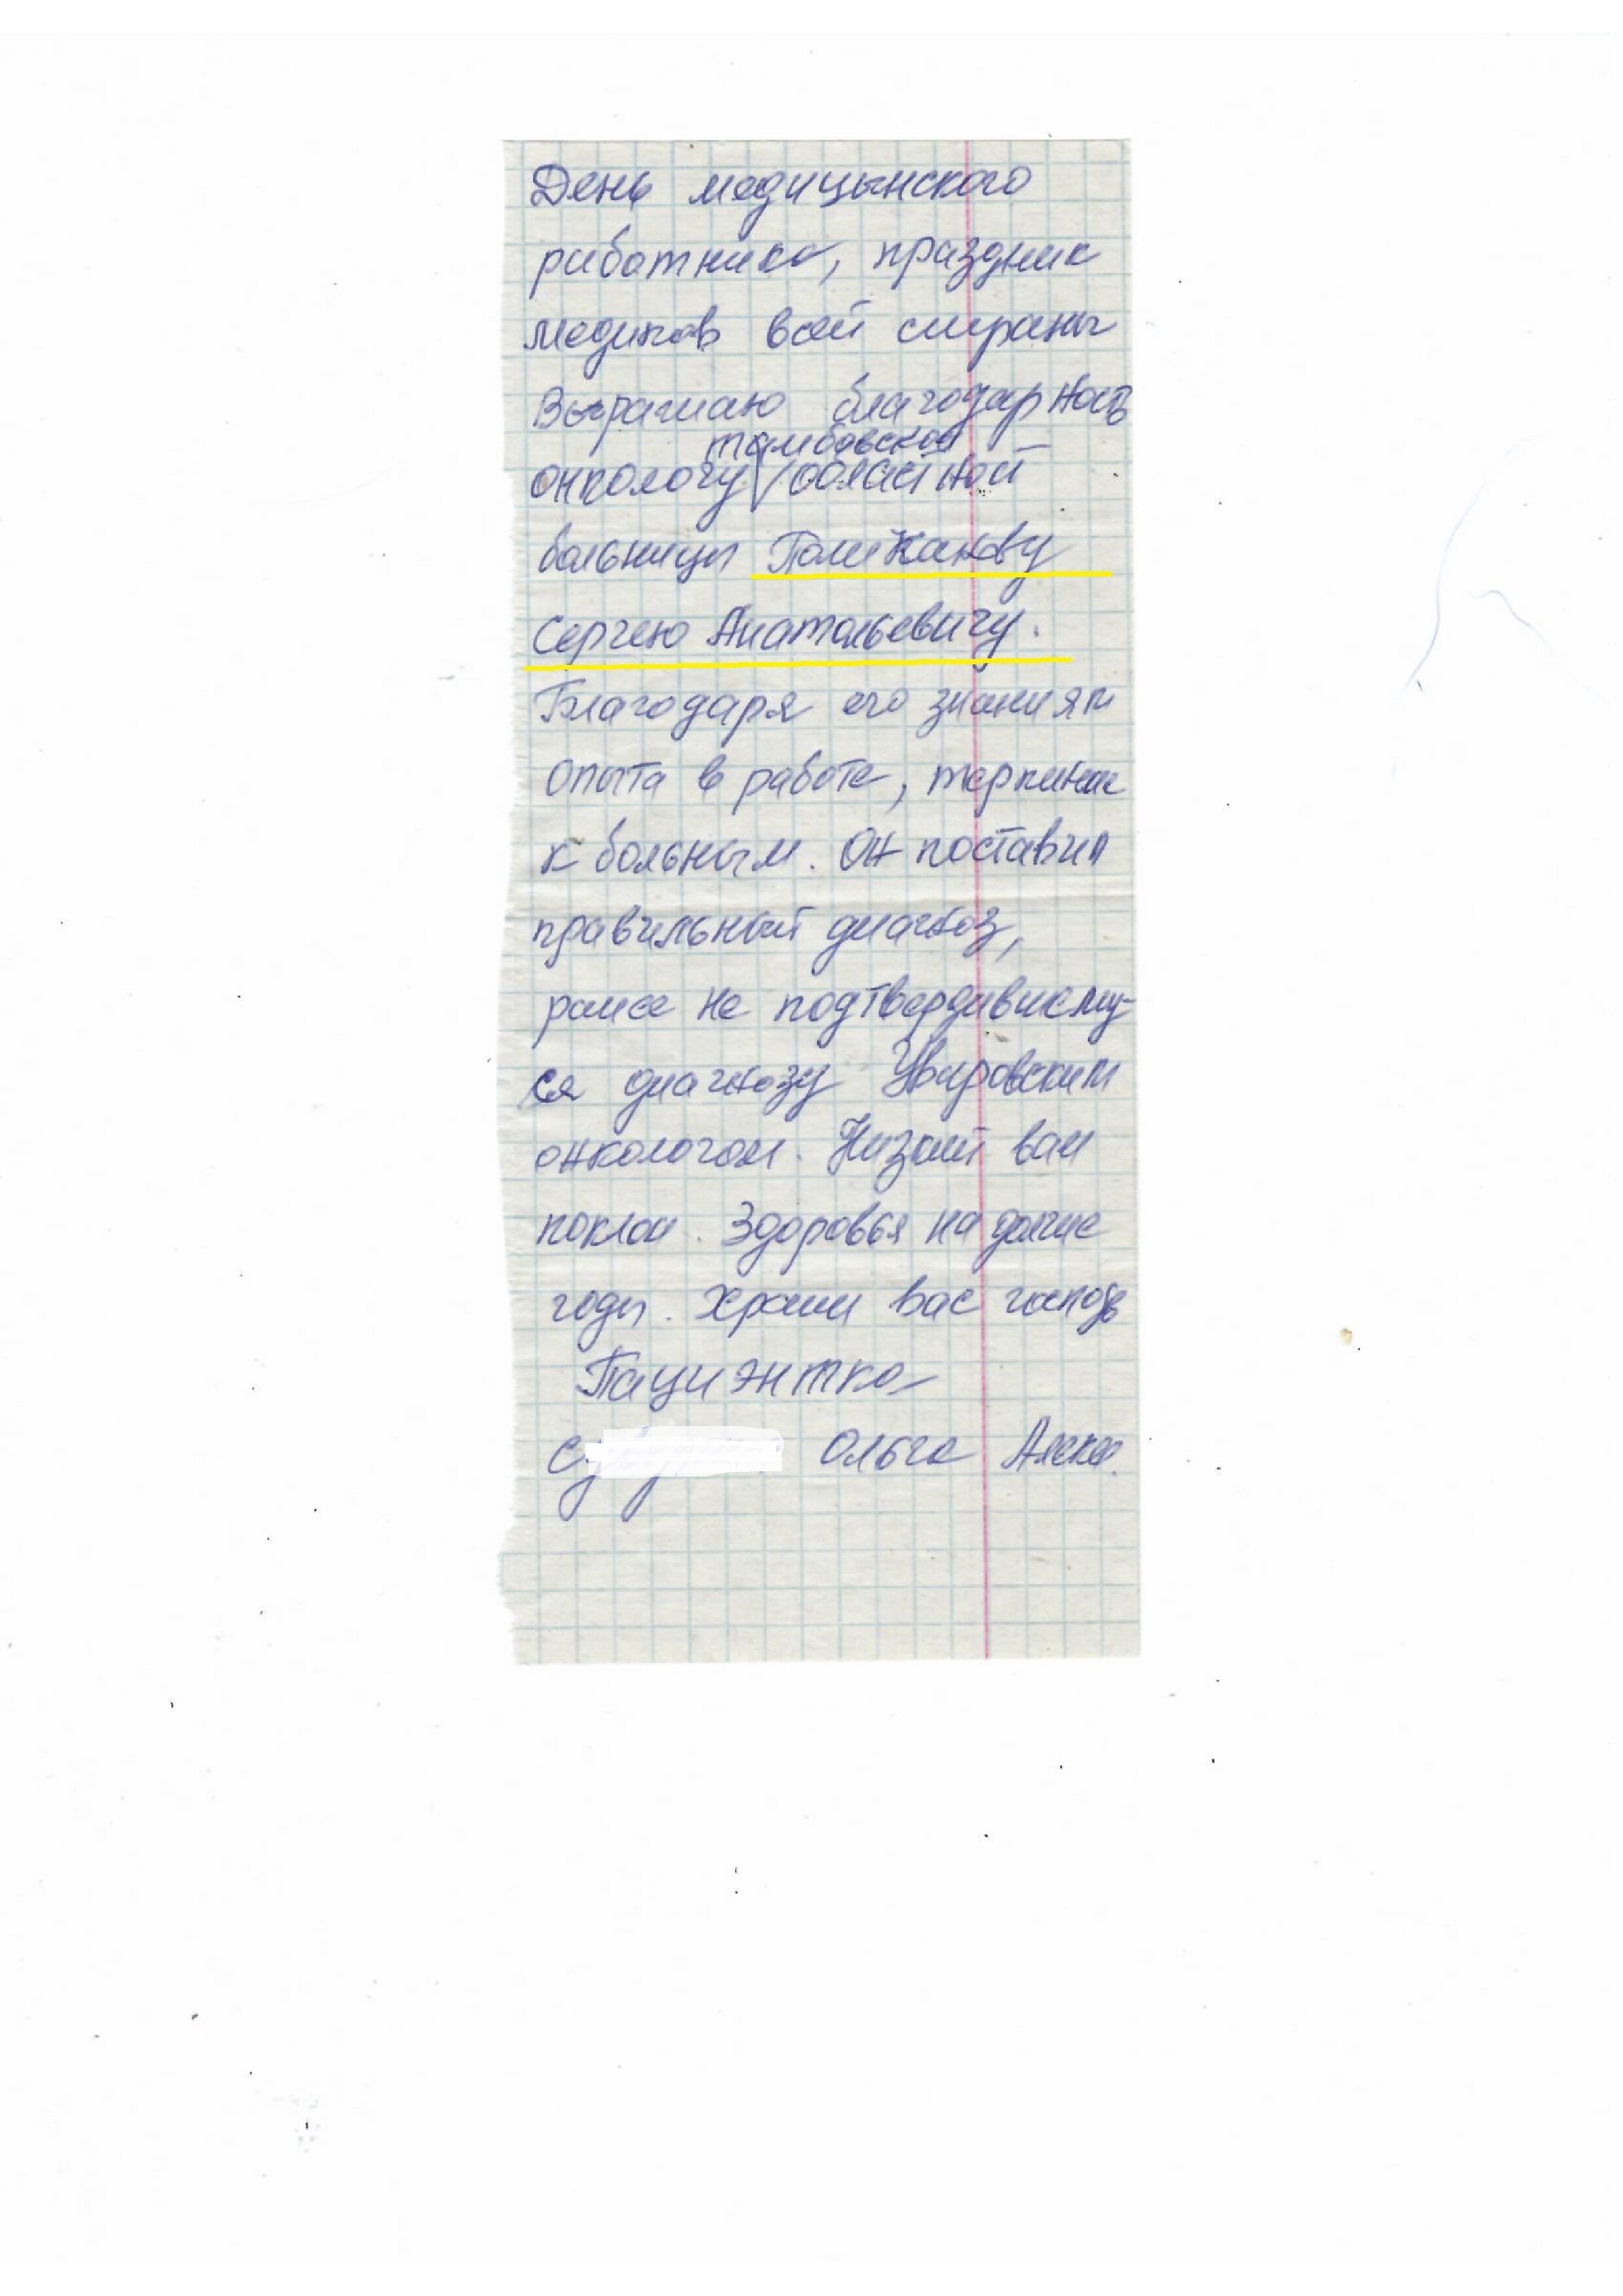 День медицынского
работника, праздник
медиков всей страны
Выражаю благодарность
тамбовской
онкологу областной
больницы Поликанову
Сергею Анатольевичу.
Благодаря его знаниям
опыта в работе,
к больным. Он поставил
правильный диагноз,
ранее не
ся диагнозу Уваровским
онкологом. Низкий вам
поклон. Здоровья на долгие
годы. Храни вас господь
Пациэнтка
Ольга Алекс.